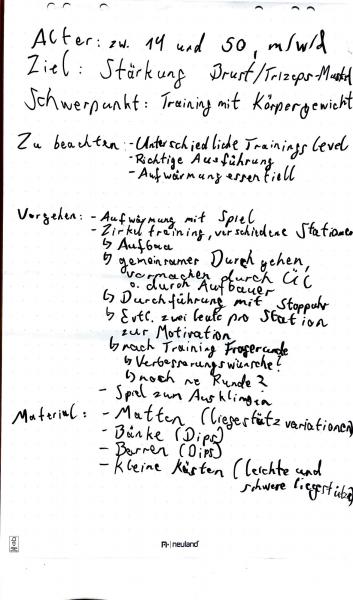 Alter: zw. 14 und 50, m/w/d
Ziel: Stärkung Brust/Trizeps-Muskel
Schwerpunkt: Training mit Körpergewicht
Zu beachten: - Unterschiedliche Trainings level
- Richtige Ausführung
- Aufwärmung essentiell
Vorgehen: - Aufwärmung mit Spiel
- Zirkeltraining, verschiedene Stationen
↳ Aufbau
↳ gemeinsamer Durchgehen,
vormachen durch ÜL
o. durch Aufbauer
↳ Durchführung mit Stoppuhr
↳ Evtl. zwei leute pro Station
zur Motivation
↳ nach Training Fragerunde
↳ Verbesserungswünsche?
↳ noch ne Runde?
- Spiel zum Ausklingen
Material: - Matten (liegestütz variationen)
- Bänke (Dips)
- Barren (Dips)
- Kleine Kästen (leichte und
schwere liegestütze)
neuland